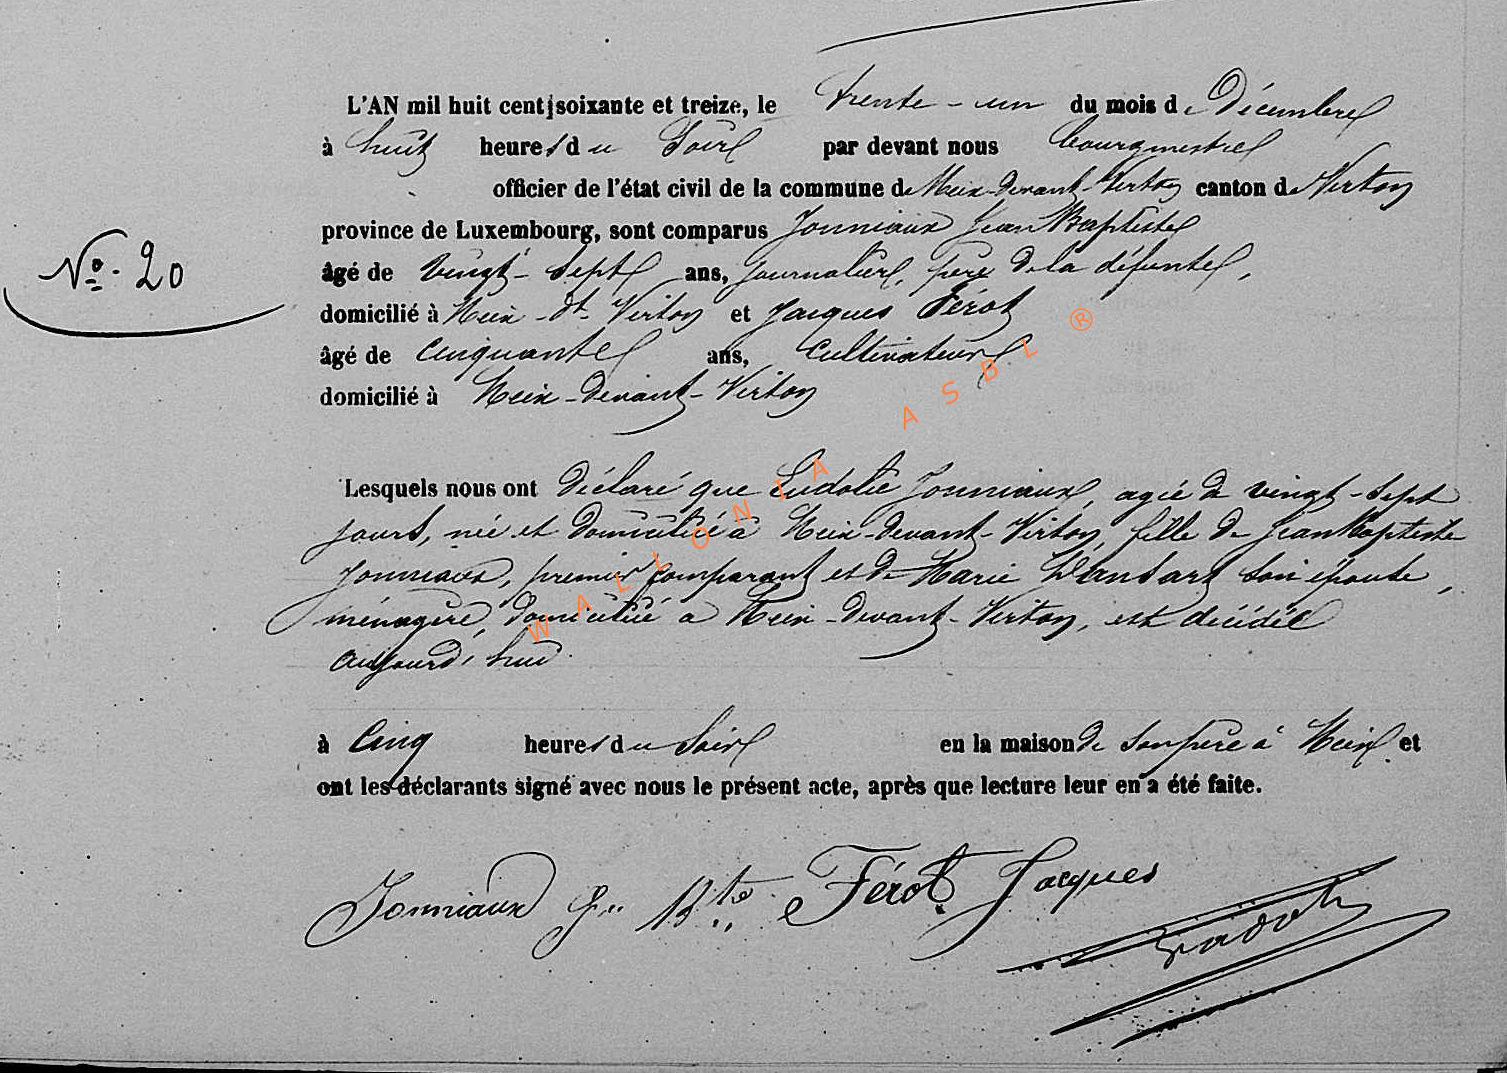 L'AN mil huit cent soixante et treize, le trente-un du mois de Décembre
à huit heures du Soir par devant nous bourgmestre
officier de l'état civil de la commune de Meix-devant-Virton canton de Virton
province de Luxembourg, sont comparus Jonniaux Jean Baptiste
N° 20
âgé de vingt-sept ans, journalier, père de la défunte,
domicilié à Meix-dt-Virton et Jacques Férot
âgé de cinquante ans, cultivateur
domicilié à Meix-devant-Virton
Lesquels nous ont déclaré que Ludolie Jonniaux, agée de vingt-sept
jours, née et domiciliée à Meix-devant-Virton, fille de Jean Baptiste
Jonniaux, premier comparant et de Marie Lansart son épouse,
ménagère, domiciliée à Meix-devant-Virton, est décédée
aujourd'hui
à Cinq heures du Soir en la maison de son père à Meix et
ont les déclarants signé avec nous le présent acte, après que lecture leur en a été faite.
Jonniaux Jn Bte Férot Jacques
WALLONIA ASBL ®